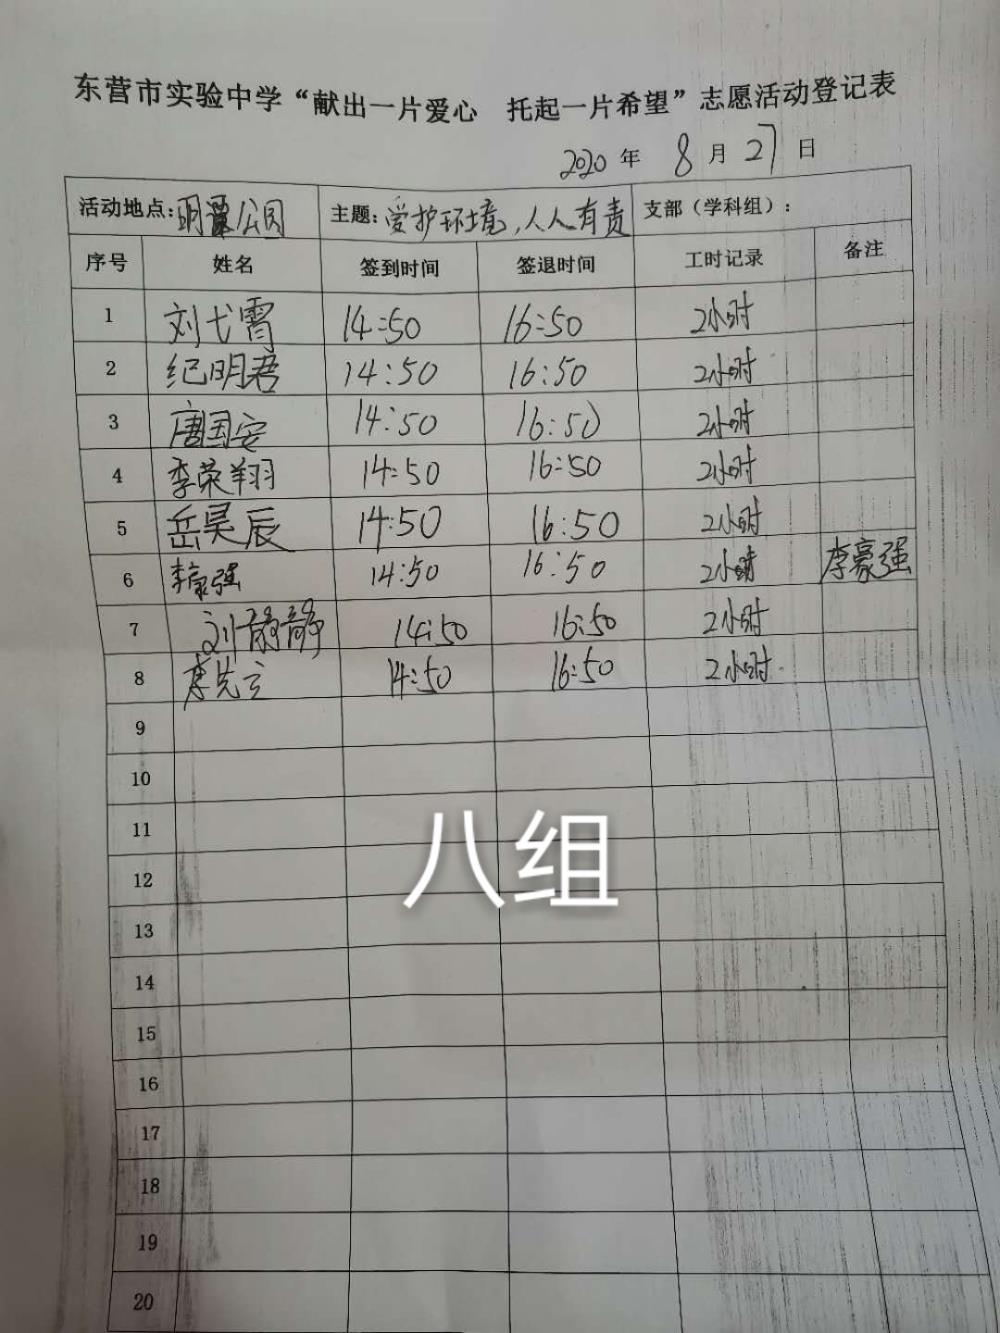 东营市实验中学“献出一片爱心 托起一片希望”志愿活动登记表
2020 年 8 月 27 日
活动地点:明潭公园 主题:爱护环境,人人有责 支部(学科组):
序号 姓名 签到时间 签退时间 工时记录 备注
1 刘弋霄 14:50 16:50 2小时
2 纪明君 14:50 16:50 2小时
3 唐国安 14:50 16:50 2小时
4 李荣翔 14:50 16:50 2小时
5 岳昊辰 14:50 16:50 2小时
6 李豪强 14:50 16:50 2小时 李豪强
7 刘静静 14:50 16:50 2小时
8 李先立 14:50 16:50 2小时
9
10
11
八组
12
13
14
15
16
17
18
19
20